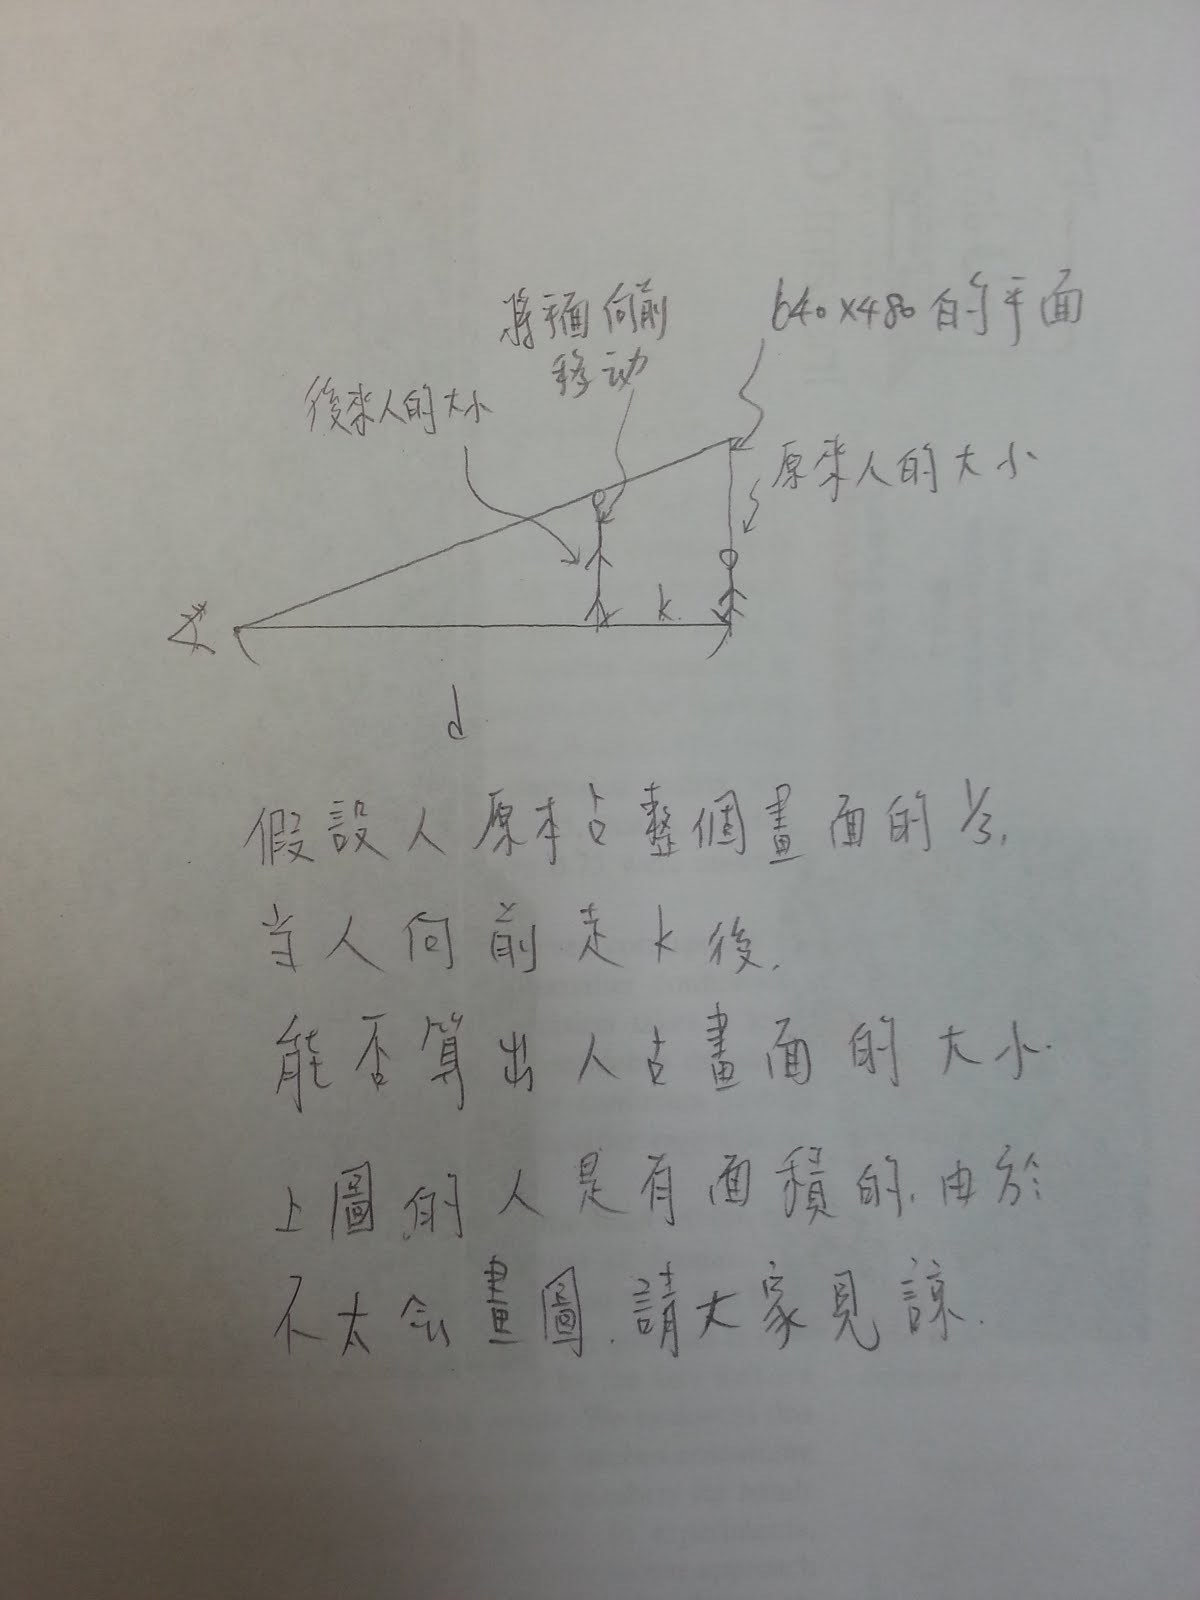 將平面向前
移动
640×480 的平面
後來人的大小
原來人的大小
k
d
假設人原本占整個畫面的 1/3,
当人向前走 k 後,
能否算出人占畫面的大小.
上圖的人是有面積的,由於
不太会畫圖,請大家見諒.